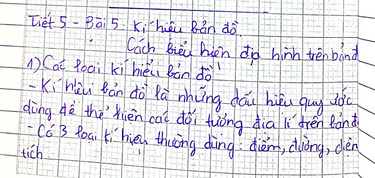 Tiết 5 - Bài 5: Kí hiệu bản đồ.
Cách biểu hiện địa hình trên bản đ
1) Các loại kí hiệu bản đồ
- Kí hiệu bản đồ là những dấu hiệu quy ước
dùng để thể hiện các đối tượng địa lí trên bản đ
- Có 3 loại kí hiệu thường dùng: điểm, đường, diện
tích